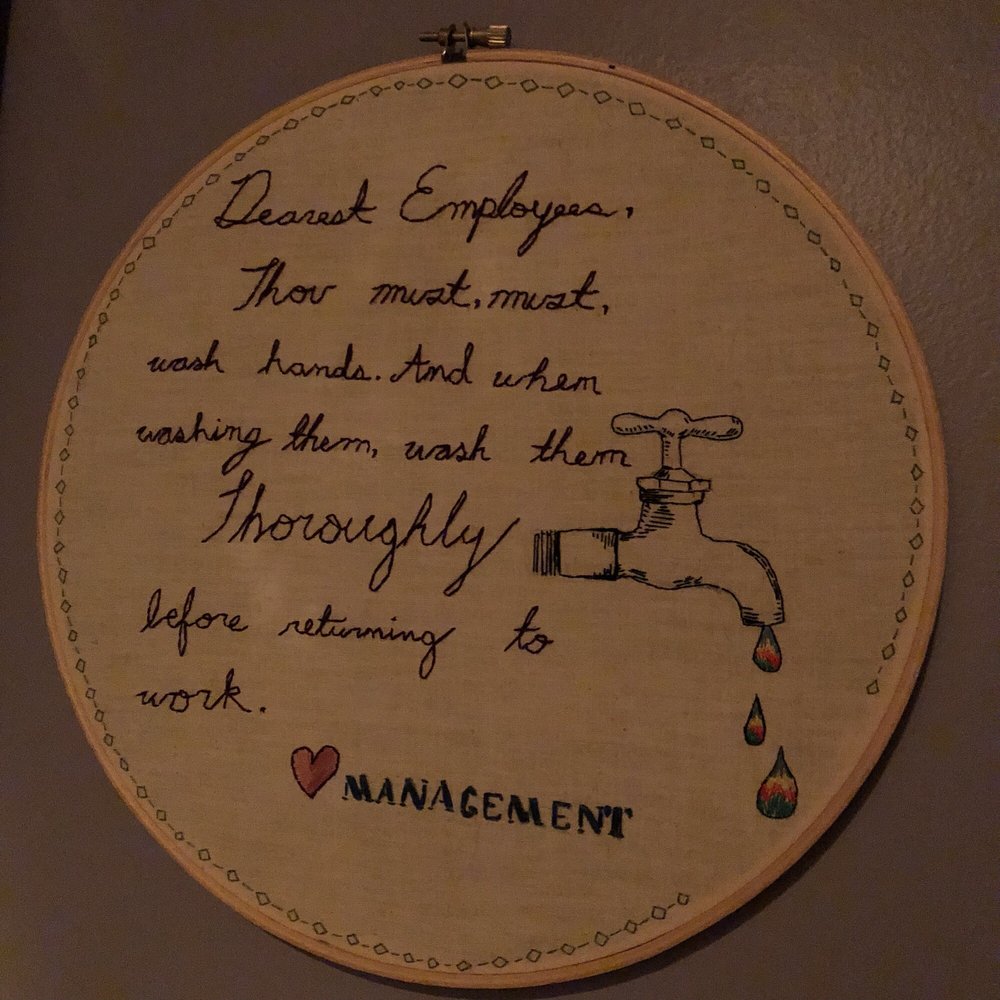 Dearest Employees,
Thou must, must,
wash hands. And when
washing them, wash them
Thoroughly
before returning to
work.
MANAGEMENT